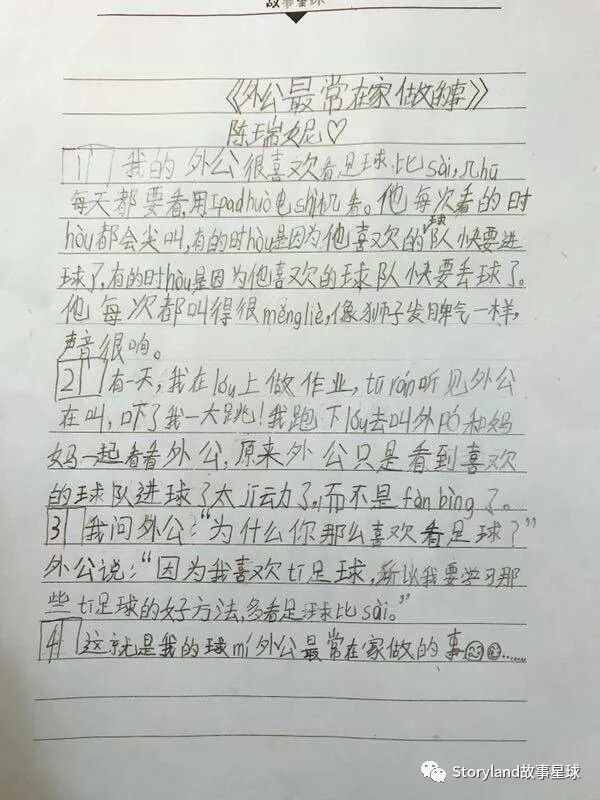 故事星球
《外公最常在家做的事》
陈瑞妮♡
1 我的外公很喜欢看足球比sài,几hū
每天都要看,用Ipad huò电shì机看。他每次看的时
hòu都会尖叫,有的时hòu是因为他喜欢的球队快要进
球了,有的时hòu是因为他喜欢的球队快要丢球了。
他每次都叫得很měngliè,像狮子发脾气一样,
声音很响。
2 有一天,我在lóu上做作业,tū rán听见外公
在叫,吓了我一大跳!我跑下lóu去叫外PÓ和妈
妈一起看看外公,原来外公只是看到喜欢
的球队进球了太jī动了。而不是fàn bìng了。
3 我问外公:“为什么你那么喜欢看足球?”
外公说:“因为我喜欢tī足球,所以我要学习那
些tī足球的好方法,多看足球比sài。”
4 这就是我的球mí外公最常在家做的事😊☺……
Storyland故事星球